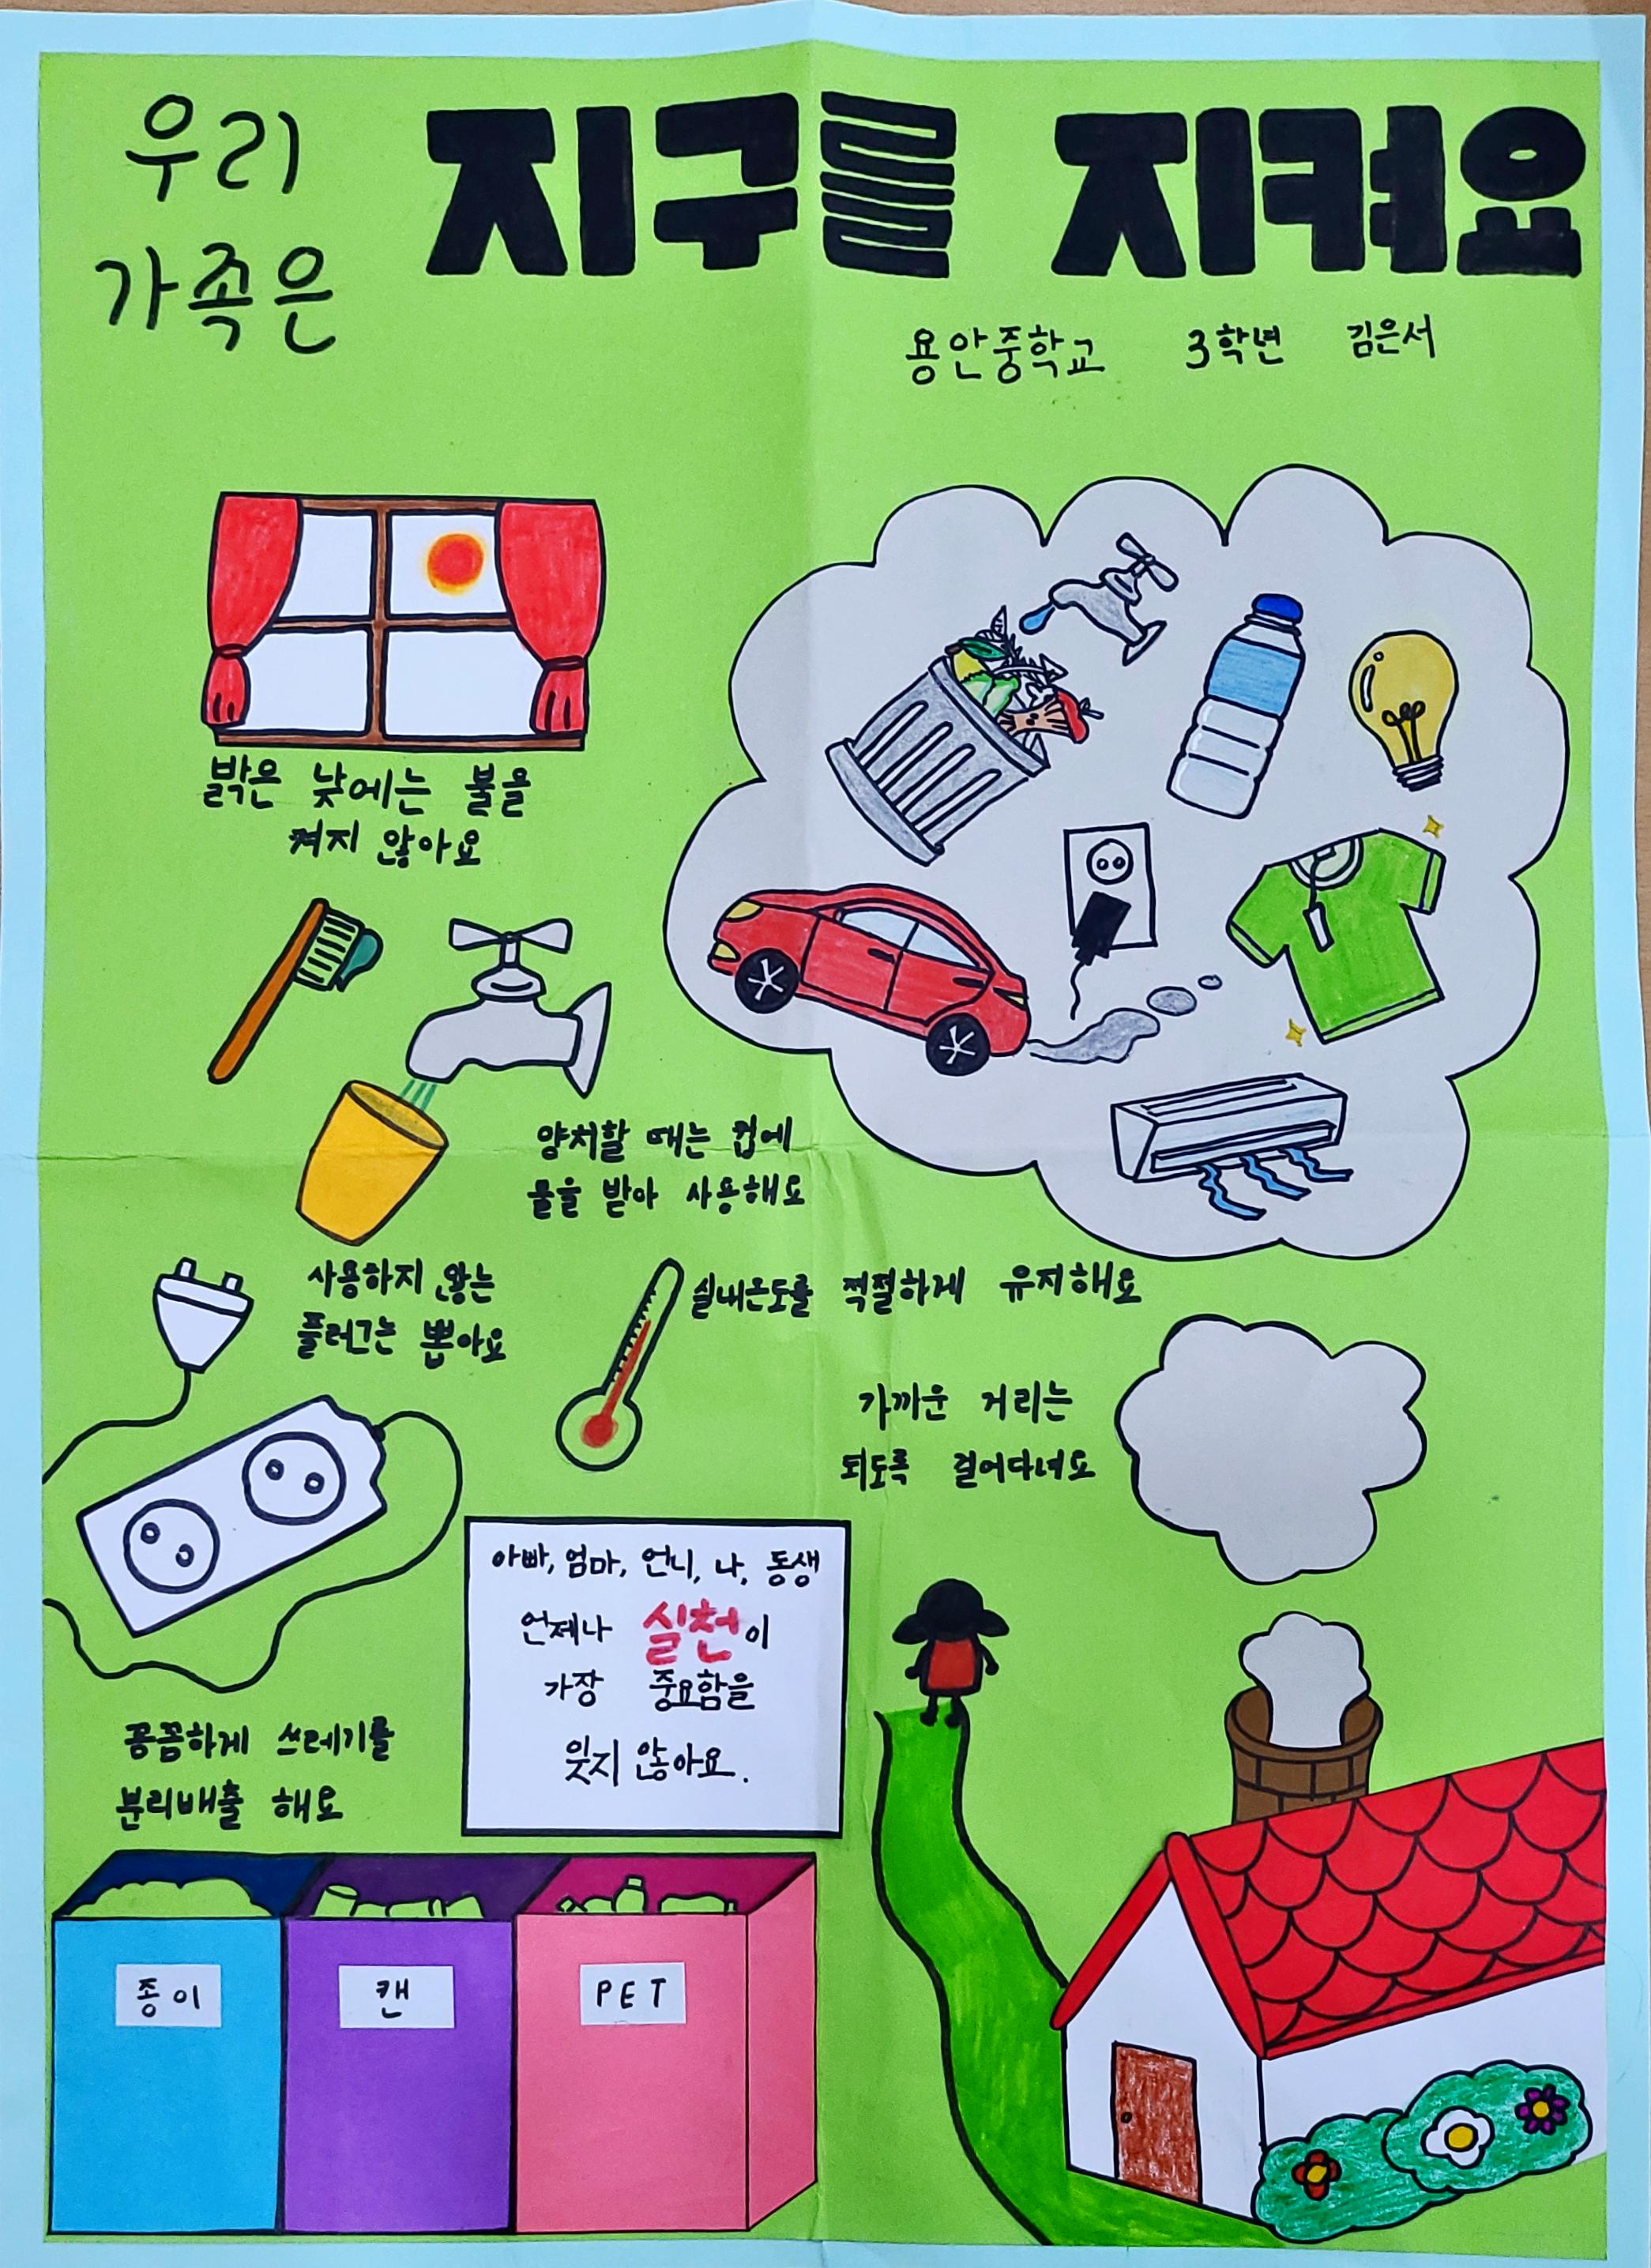 우리
가족은
지구를 지켜요
용안중학교 3학년 김은서
밝은 낮에는 불을
켜지 않아요
양치할 때는 컵에
물을 받아 사용해요
사용하지 않는
플러그는 뽑아요
실내온도를 적절하게 유지해요
가까운 거리는
되도록 걸어다녀요
아빠, 엄마, 언니, 나, 동생
언제나 실천이
가장 중요함을
잊지 않아요.
꼼꼼하게 쓰레기를
분리배출 해요
종이
캔
PET